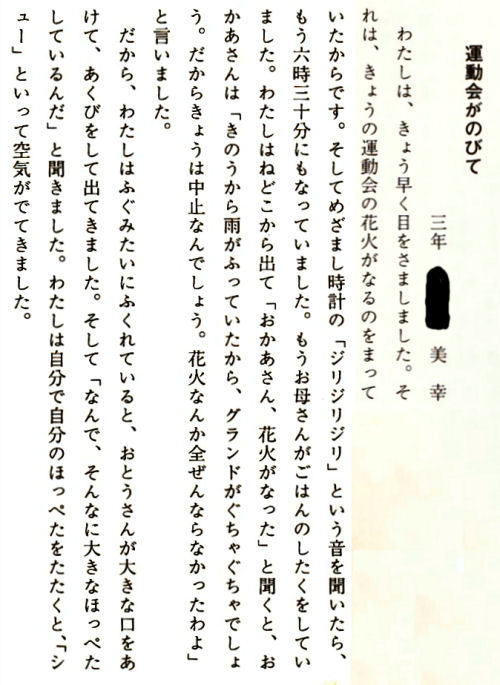 運動会がのびて
三年 美幸
わたしは、きょう早く目をさましました。そ
れは、きょうの運動会の花火がなるのをまって
いたからです。そしてめざまし時計の「ジリジリジリ」という音を聞いたら、
もう六時三十分にもなっていました。もうお母さんがごはんのしたくをしてい
ました。わたしはねどこから出て「おかあさん、花火がなった」と聞くと、お
かあさんは「きのうから雨がふっていたから、グランドがぐちゃぐちゃでしょ
う。だからきょうは中止なんでしょう。花火なんか全ぜんならなかったわよ」
と言いました。
だから、わたしはふぐみたいにふくれていると、おとうさんが大きな口をあ
けて、あくびをして出てきました。そして「なんで、そんなに大きなほっぺた
しているんだ」と聞きました。わたしは自分で自分のほっぺたをたたくと、「シ
ュー」といって空気がでてきました。